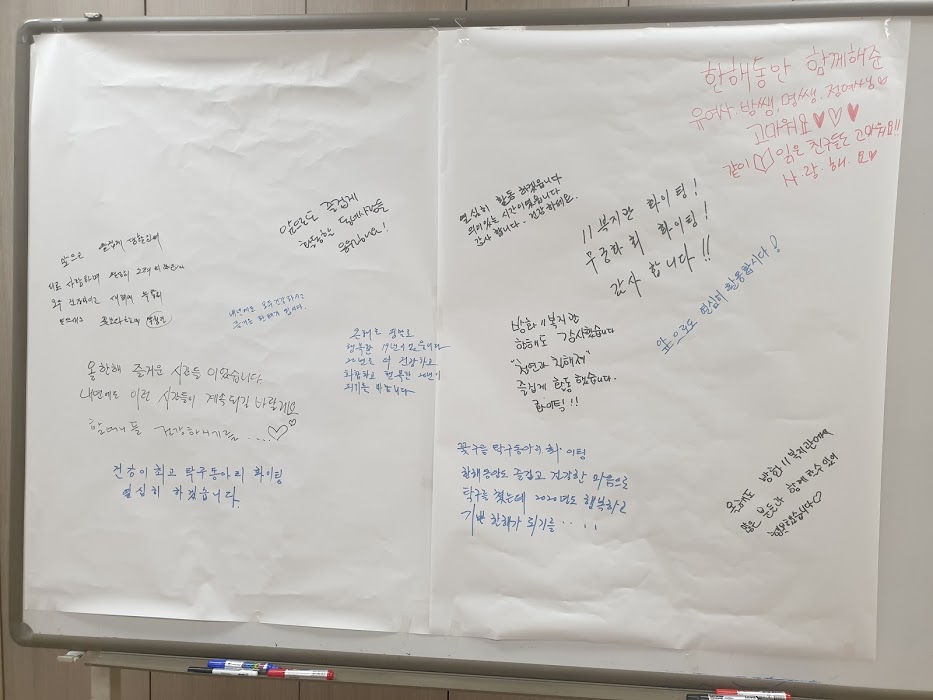 앞으로도 즐겁게
활동할 동네사람들
응원합니다!
앞으로
서로 사랑하며
모두 건강하시고 새해에
내년에도 모두 건강하시고
즐거운 한해가 됩시다.
올한해 즐거운 시간들 이었습니다.
내년에도 이런 시간들이 계속되길 바랄게요
할머니들 건강하시기를 .....♡♡
건강이 최고 탁구동아리 화이팅
열심히 하겠습니다.
온해는
행복한 19년이
20년도 더 건강하고
화합하고 행복한 20년이
되기를 바랍니다
한해동안 함께해준
유여사. 방쌤, 명쌤. 정여사님♡
고마워요♥♡♥
같이 읽은 친구들도 고마워요!!
사. 랑. 해. 요♥
열심히 활동 하겠습니다
의미있는 시간이였습니다
감사 합니다. 건강 하세요.
11 복지관 화이팅!
무궁화 회 화이팅!
감사 합니다!!
앞으로도 열심히 활동합시다!
방화11복지관
한해도 감사했습니다
"천연과 친해져"
즐겁게 활동 했습니다.
화이팅!!
꽃구름 탁구동아리 화.이팅
한해동안도 즐겁고 건강한 마음으로
탁구를 쳤는데 2020년도 행복하고
기쁜 한해가 되기를 .....
올해도 방화11복지관에서
많은 분들과 함께 할수 있어
행복했습니다♡